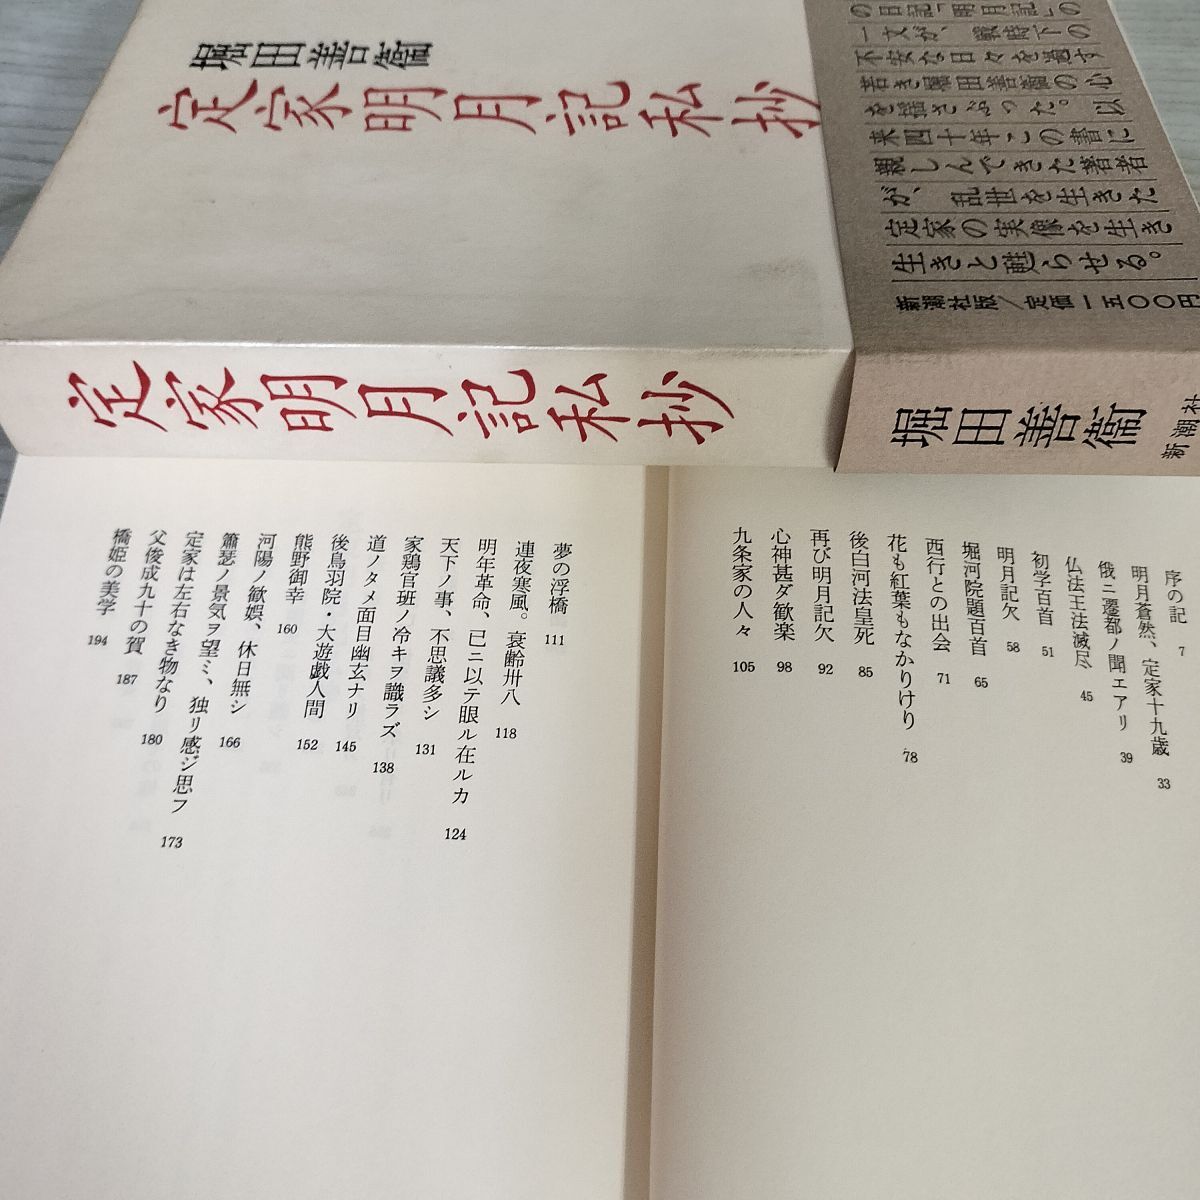 堀田善衞
定家明月記私抄
の日記「明月記」の
一文が、戦時下の
不安な日々を過す
若き堀田善衞の心
を揺さぶった。以
来四十年この書に
親しんできた著者
が、乱世を生きた
定家の実像を生き
生きと甦らせる。
新潮社版／定価一五〇〇円
定家明月記私抄
堀田善衞
新潮社
序の記 7
明月蒼然、定家十九歳 33
俄ニ遷都ノ聞エアリ 39
仏法王法滅尽 45
初学百首 51
明月記欠 58
堀河院題百首 65
西行との出会 71
花も紅葉もなかりけり 78
後白河法皇死 85
再び明月記欠 92
心神甚ダ歓楽 98
九条家の人々 105
夢の浮橋 111
連夜寒風。衰齢卅八 118
明年革命、已ニ以テ眼ル在ルカ 124
天下ノ事、不思議多シ 131
家鶏官班ノ冷キヲ識ラズ 138
道ノタメ面目幽玄ナリ 145
後鳥羽院・大遊戯人間 152
熊野御幸 160
河陽ノ歓娯、休日無シ 166
簫瑟ノ景気ヲ望ミ、独リ感ジ思フ 173
定家は左右なき物なり 180
父俊成九十の賀 187
橋姫の美学 194